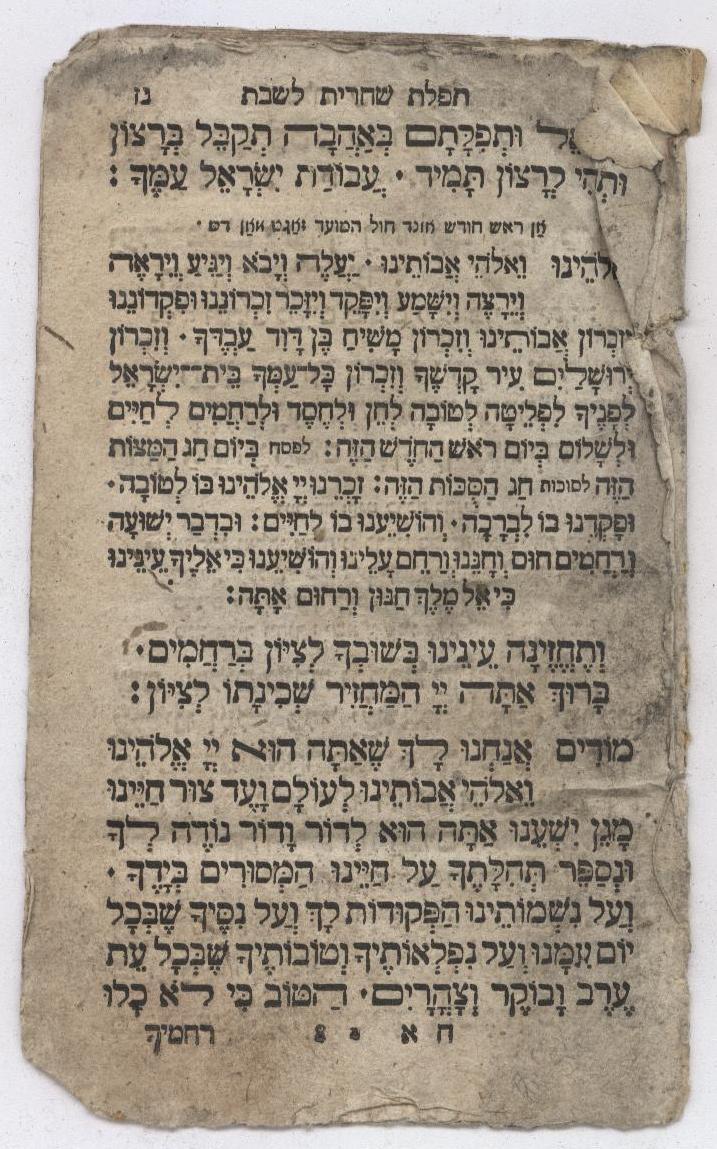 תפלת שחרית לשבת נז
וּתְפִלָּתָם בְּאַהֲבָה תְקַבֵּל בְּרָצוֹן
וּתְהִי לְרָצוֹן תָּמִיד · עֲבוֹדַת יִשְׂרָאֵל עַמֶּךָ :
אן ראש חודש אונד חול המועד זאגט מאן דש ·
אֱלֹהֵינוּ וֵאלֹהֵי אֲבוֹתֵינוּ · יַעֲלֶה וְיָבֹא וְיַגִּיעַ וְיֵרָאֶה
וְיֵרָצֶה וְיִשָּׁמַע וְיִפָּקֵד וְיִזָּכֵר זִכְרוֹנֵנוּ וּפִקְדוֹנֵנוּ
וְזִכְרוֹן אֲבוֹתֵינוּ וְזִכְרוֹן מָשִׁיחַ בֶּן דָּוִד עַבְדֶּךָ · וְזִכְרוֹן
יְרוּשָׁלַיִם עִיר קָדְשֶׁךָ וְזִכְרוֹן כָּל־עַמְּךָ בֵּית־יִשְׂרָאֵל
לְפָנֶיךָ לִפְלֵיטָה לְטוֹבָה לְחֵן וּלְחֶסֶד וּלְרַחֲמִים לְחַיִּים
וּלְשָׁלוֹם בְּיוֹם רֹאשׁ הַחֹדֶשׁ הַזֶּה : לפסח בְּיוֹם חַג הַמַּצּוֹת
הַזֶּה לסוכות חַג הַסֻּכּוֹת הַזֶּה : זָכְרֵנוּ יְיָ אֱלֹהֵינוּ בּוֹ לְטוֹבָה ·
וּפָקְדֵנוּ בוֹ לִבְרָכָה · וְהוֹשִׁיעֵנוּ בוֹ לְחַיִּים : וּבִדְבַר יְשׁוּעָה
וְרַחֲמִים חוּס וְחָנֵּנוּ וְרַחֵם עָלֵינוּ וְהוֹשִׁיעֵנוּ כִּי אֵלֶיךָ עֵינֵינוּ
כִּי אֵל מֶלֶךְ חַנּוּן וְרַחוּם אָתָּה :
וְתֶחֱזֶינָה עֵינֵינוּ בְּשׁוּבְךָ לְצִיּוֹן בְּרַחֲמִים ·
בָּרוּךְ אַתָּה יְיָ הַמַּחֲזִיר שְׁכִינָתוֹ לְצִיּוֹן :
מוֹדִים אֲנַחְנוּ לָךְ שֶׁאַתָּה הוּא יְיָ אֱלֹהֵינוּ
וֵאלֹהֵי אֲבוֹתֵינוּ לְעוֹלָם וָעֶד צוּר חַיֵּינוּ
מָגֵן יִשְׁעֵנוּ אַתָּה הוּא לְדוֹר וָדוֹר נוֹדֶה לְּךָ
וּנְסַפֵּר תְּהִלָּתֶךָ עַל חַיֵּינוּ הַמְּסוּרִים בְּיָדֶךָ ·
וְעַל נִשְׁמוֹתֵינוּ הַפְּקוּדוֹת לָךְ וְעַל נִסֶּיךָ שֶׁבְּכָל
יוֹם עִמָּנוּ וְעַל נִפְלְאוֹתֶיךָ וְטוֹבוֹתֶיךָ שֶׁבְּכָל עֵת
עֶרֶב וָבוֹקֶר וְצָהֳרָיִם · הַטּוֹב כִּי לֹא כָלוּ
ח א רחמיך